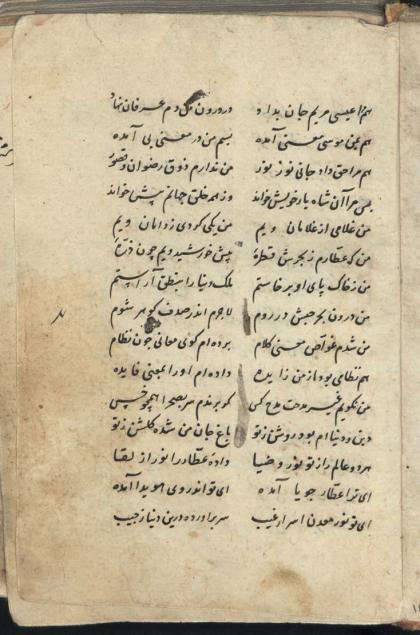 هم مرا عیسی مریم جان بداد و درون من دم عرفان نهاد
هم بمن موسی بمعنی آمده بسم من در معنی بی آمده
هم مرا حق داد جانی نور نور من ندارم ذوق رضوان و قصور
پس مرا آن شاه یار خویش خواند وز همه خلق جهانم پیش خواند
من غلامی از غلامان ویم من یکی گردی ز دامان ویم
من که عطارم ز بحرش قطرهٔ پیش خورشید ویم چون ذرهٔ
من ز خاک پای او برخاستم ملک دنیا را بنطق آراستم
من درون بحر جیش در روم لاجرم اندر صدف گوهر شوم
من شدم غواص معنی کلام برده‌ام گوی معانی چون نظام
هم نظامی بود از من زایده داده‌ام او را بمعنی فایده
من نگویم غیر مدحت مدح کس گر برندم سر بصحرا همچو خس
دین و دنیاام بود روشن ز تو باغ جان من شده گلشن ز تو
هر دو عالم را ز تو نور و ضیا دادهٔ عطار را نور از لقا
ای ترا عطار جویا آمده ای تو اندر وی هویدا آمده
ای تو نور معدن اسرار غیب سر برآورده درین دنیا ز جیب